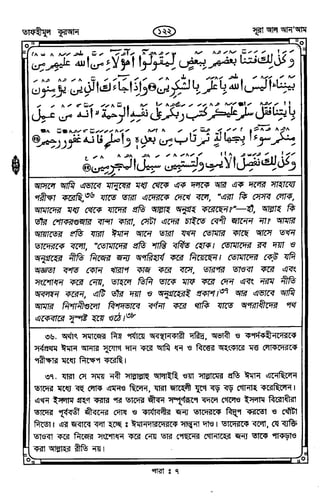 তাফহীমুল কুরআন
১২২
সূরা আল আন'আম
وَكَذٰلِكَ فَتَنَّا بَعْضَهُمْ بِبَعْضٍ لِّيَقُوْلُوْٓا اَهٰٓؤُلَآءِ مَنَّ اللهُ عَلَيْهِمْ مِّنْۢ
بَيْنِنَا ؕ اَلَيْسَ اللهُ بِاَعْلَمَ بِالشّٰكِرِيْنَ ۞ وَاِذَا جَآءَكَ الَّذِيْنَ يُؤْمِنُوْنَ
بِاٰيٰتِنَا فَقُلْ سَلٰمٌ عَلَيْكُمْ كَتَبَ رَبُّكُمْ عَلٰى نَفْسِهِ الرَّحْمَةَ ۙ اَنَّهٗ مَنْ عَمِلَ
مِنْكُمْ سُوْٓءًۢا بِجَهَالَةٍ ثُمَّ تَابَ مِنْۢ بَعْدِهٖ وَاَصْلَحَ فَاَنَّهٗ غَفُوْرٌ رَّحِيْمٌ ۞
وَكَذٰلِكَ نُفَصِّلُ الْاٰيٰتِ وَلِتَسْتَبِيْنَ سَبِيْلُ الْمُجْرِمِيْنَ ۞
আসলে আমি এভাবে মানুষের মধ্য থেকে এক দলকে আর এক দলের সাহায্যে
পরীক্ষা করেছি,৩৬ যাতে তারা এদেরকে দেখে বলে, "এরা কি সেসব লোক,
আমাদের মধ্য থেকে যাদের প্রতি আল্লাহ অনুগ্রহ করেছেন?"—হাঁ, আল্লাহ কি
তাঁর শোকরগুজার বান্দা কারা, সেটা এদের চাইতে বেশী জানেন না? আমার
আয়াতের প্রতি যারা ঈমান আনে তারা যখন তোমার কাছে আসে তখন
তাদেরকে বলো, "তোমাদের প্রতি শান্তি বর্ষিত হোক। তোমাদের রব দয়া ও
অনুগ্রহের নীতি নিজের জন্য অপরিহার্য করে নিয়েছেন। তোমাদের কেউ যদি
অজ্ঞতা বশত কোন খারাপ কাজ করে বসে, তারপর তাওবা করে এবং
সংশোধন করে নেয়, তাহলে তিনি তাকে মাফ করে দেন এবং নরম নীতি
অবলম্বন করেন, এটি তাঁর দয়া ও অনুগ্রহেরই প্রকাশ।৩৭ আর এভাবে আমি
আমার নিশানীগুলো বিশদভাবে বর্ণনা করে থাকি যাতে অপরাধীদের পথ
একেবারে সুস্পষ্ট হয়ে ওঠে।
৩৬. অর্থাৎ সমাজের নিম্ন পর্যায়ে অবস্থানকারী দরিদ্র, অভাবী ও কপর্দকহীনদেরকে
সর্বপ্রথম ঈমান আনার সুযোগ দান করে আমি ধন ও বিত্তের অহংকারে মত্ত লোকদেরকে
পরীক্ষার মধ্যে নিক্ষেপ করেছি।
৩৭. যারা সে সময় নবী সাল্লাল্লাহু আলাইহি ওয়া সাল্লামের প্রতি ঈমান এনেছিলেন
তাদের মধ্যে বহু লোক এমনও ছিলেন, যারা জাহেলী যুগে বড় বড় গোনাহ করেছিলেন।
এখন ইসলাম গ্রহণ করার পর তাদের জীবন সম্পূর্ণরূপে বদলে গেলেও ইসলাম বিরোধীরা
তাদের পূর্ববর্তী জীবনের দোষ ও কার্যাবলীর জন্য তাদেরকে বিদ্রূপ করতো ও খোঁটা
দিতো। এর জবাবে বলা হচ্ছে : ঈমানদারদেরকে সান্ত্বনা দাও। তাদেরকে বলো, যে ব্যক্তি
তাওবা করে নিজের সংশোধন করে নেয় তার পেছনের গোনাহের জন্য তাকে পাকড়াও
করা আল্লাহর রীতি নয়।
পারা : ৭